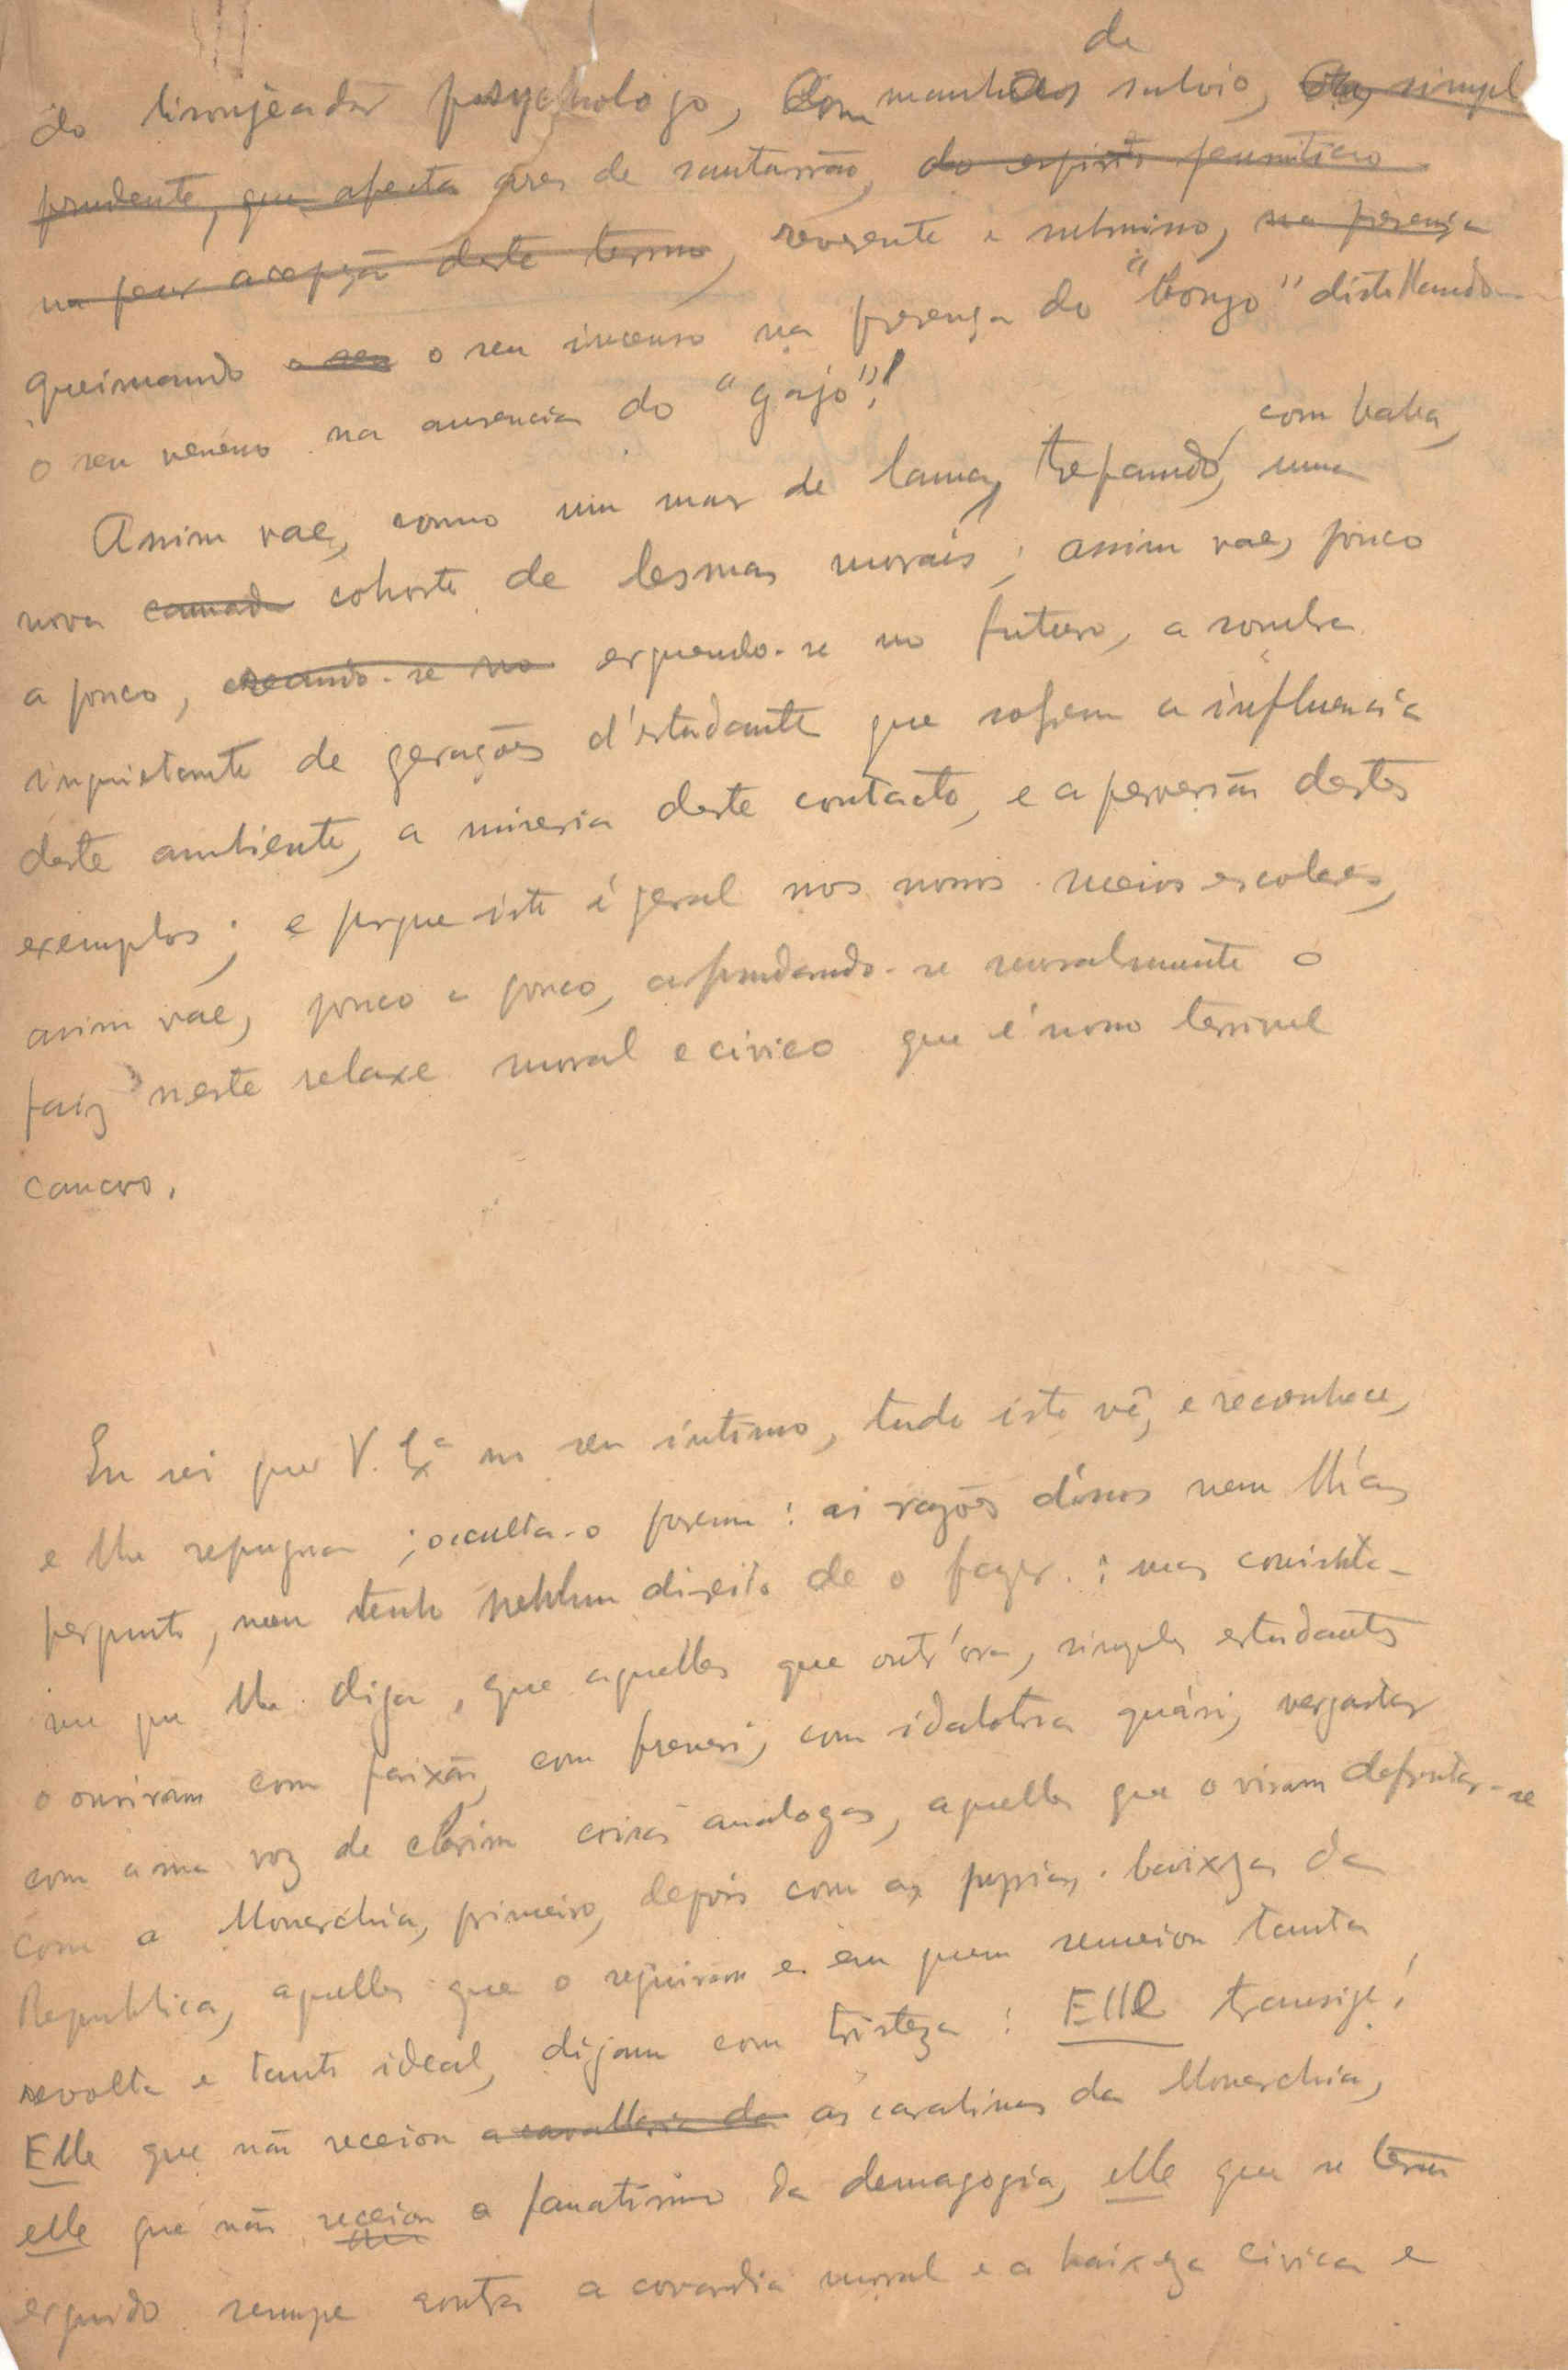 de
do lisonjeador psychologo, com manhas sabio, simpl
prudente, que afecta ares de santarrão, do espirito
na peor acepção deste termo, reverente e submisso, na presença
queimando o seu o seu incenso na presença do "Lonzo" distillando
o seu veneno na ausencia do "gajo"!
com baba,
Assim vae, como um mar de lama, trepando, uma
nova camada cohorte de lesmas morais; assim vae, pouco
a pouco, creando-se no erguendo-se no futuro, a sombra
inquietante de gerações d'estudante que sofrem a influencia
deste ambiente, a miseria deste contacto, e a perversão destes
exemplos; e porque isto é geral nos nossos meios escolares,
assim vae, pouco a pouco, afundando-se moralmente o
paiz neste relaxe moral e civico que é nosso terrivel
cancro.
Eu sei que V. Exª no seu intimo, tudo isto vê, e reconhece,
e lhe repugna; occulta-o porem: as razões disso nem lh'as
pergunto, nem tenho nenhum direito de o fazer: mas consinta-
me que lhe diga, que aquelles que outr'ora, simples estudantes
o ouviram com paixão, com frenesi, com idolatria quási, vergastar
com a sua voz de clarim coisas analogas, aquelles que o viram defrontar-se
com a Monarchia, primeiro, depois com as proprias baixezas da
Republica, aquelles que o seguiram e em quem semeiou tanta
revolta e tanto ideal, digam com tristeza: Elle transige!
Elle que não receiou a cavallaria da as carabinas da Monarchia,
elle que não receiou o fanatismo da demagogia, elle que se tem
erguido sempre contra a covardia moral e a baixeza civica e